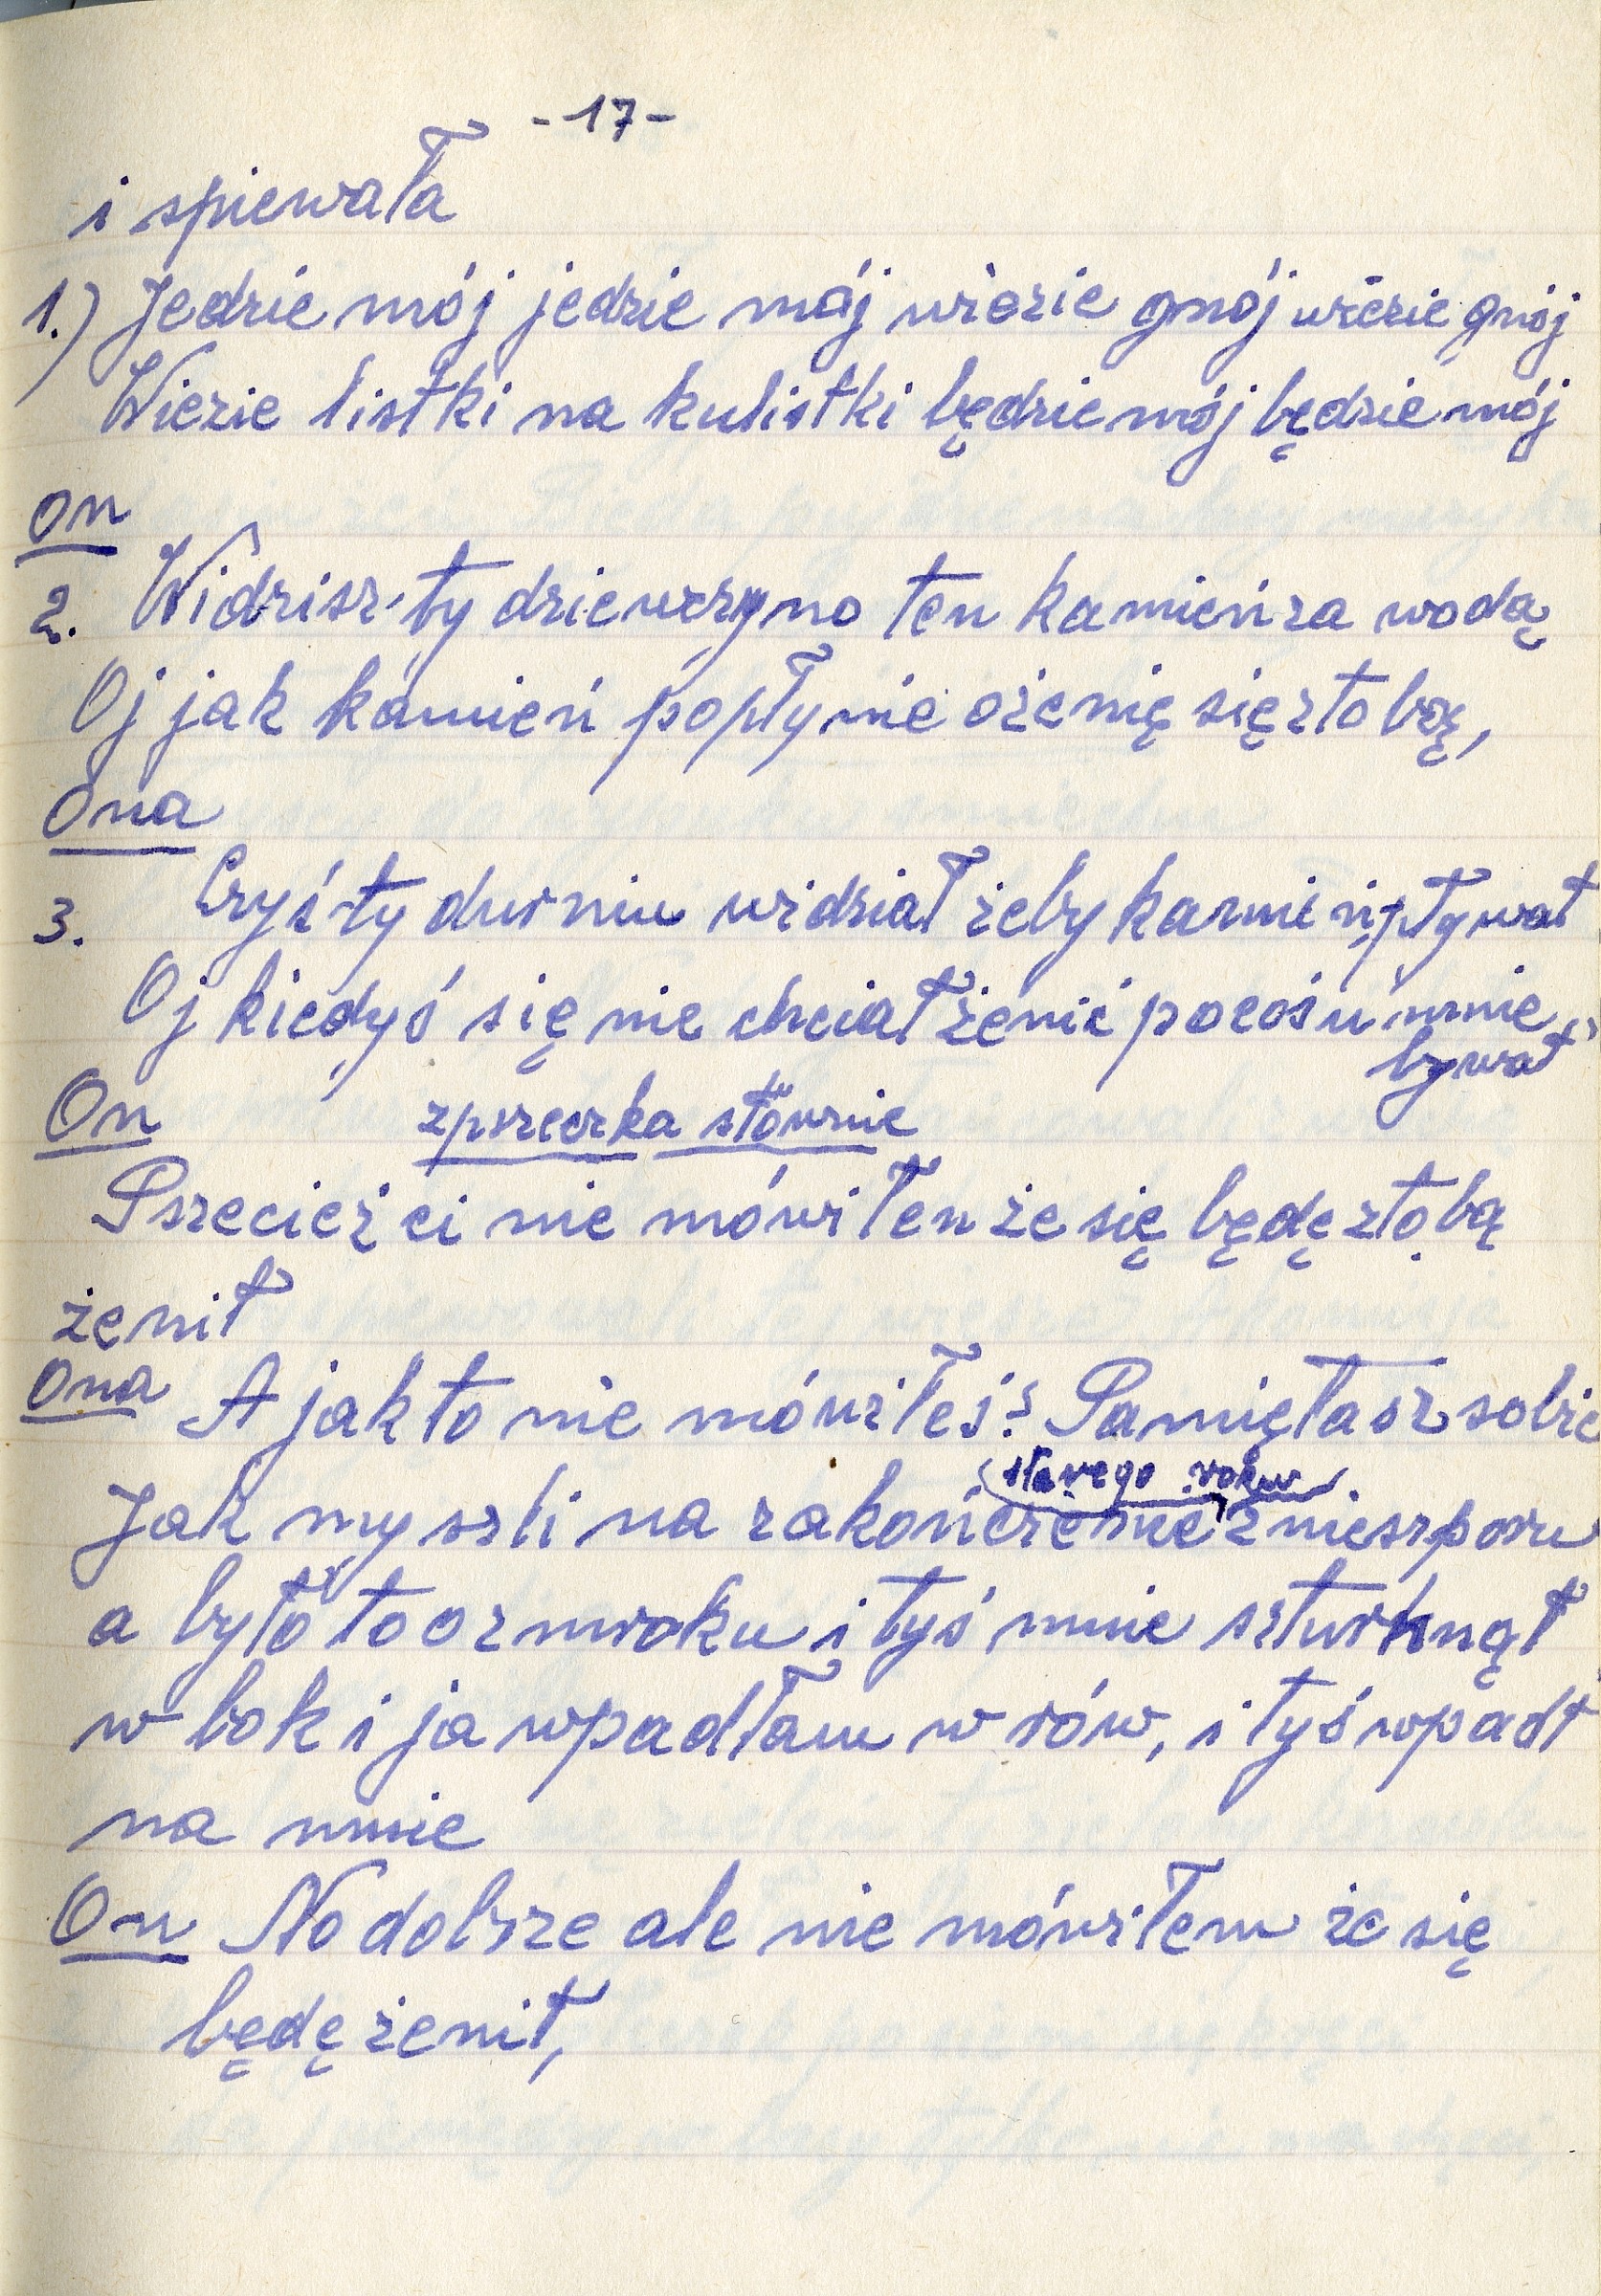 -17-
i spiewała
1.) Jedzie mój jedzie mój wiezie gnój wiezie gnój
Wiezie listki na kulistki będzie mój będzie mój
on
2. Widzisz ty dziewczyno ten kamień za wodą
Oj jak kamień popłynie ożenię się z tobą,
Ona
3. Czyś ty durniu widział żeby kamień pływał
Oj kiedyś się nie chciał żenić pocoś u mnie
bywał
On zpszeczka słównie
Pszecież ci nie mówiłen że się będę z tobą
żenił
Ona A jak to nie mówiłeś? Pamiętasz sobie
(starego roku)
Jak my szli na zakończenie z nieszporu
a było to o zmroku i tyś mnie szturknął
w bok i ja wpadłam w rów, i tyś wpadł
na mnie
On No dobrze ale nie mówiłem że się
będę żenił,